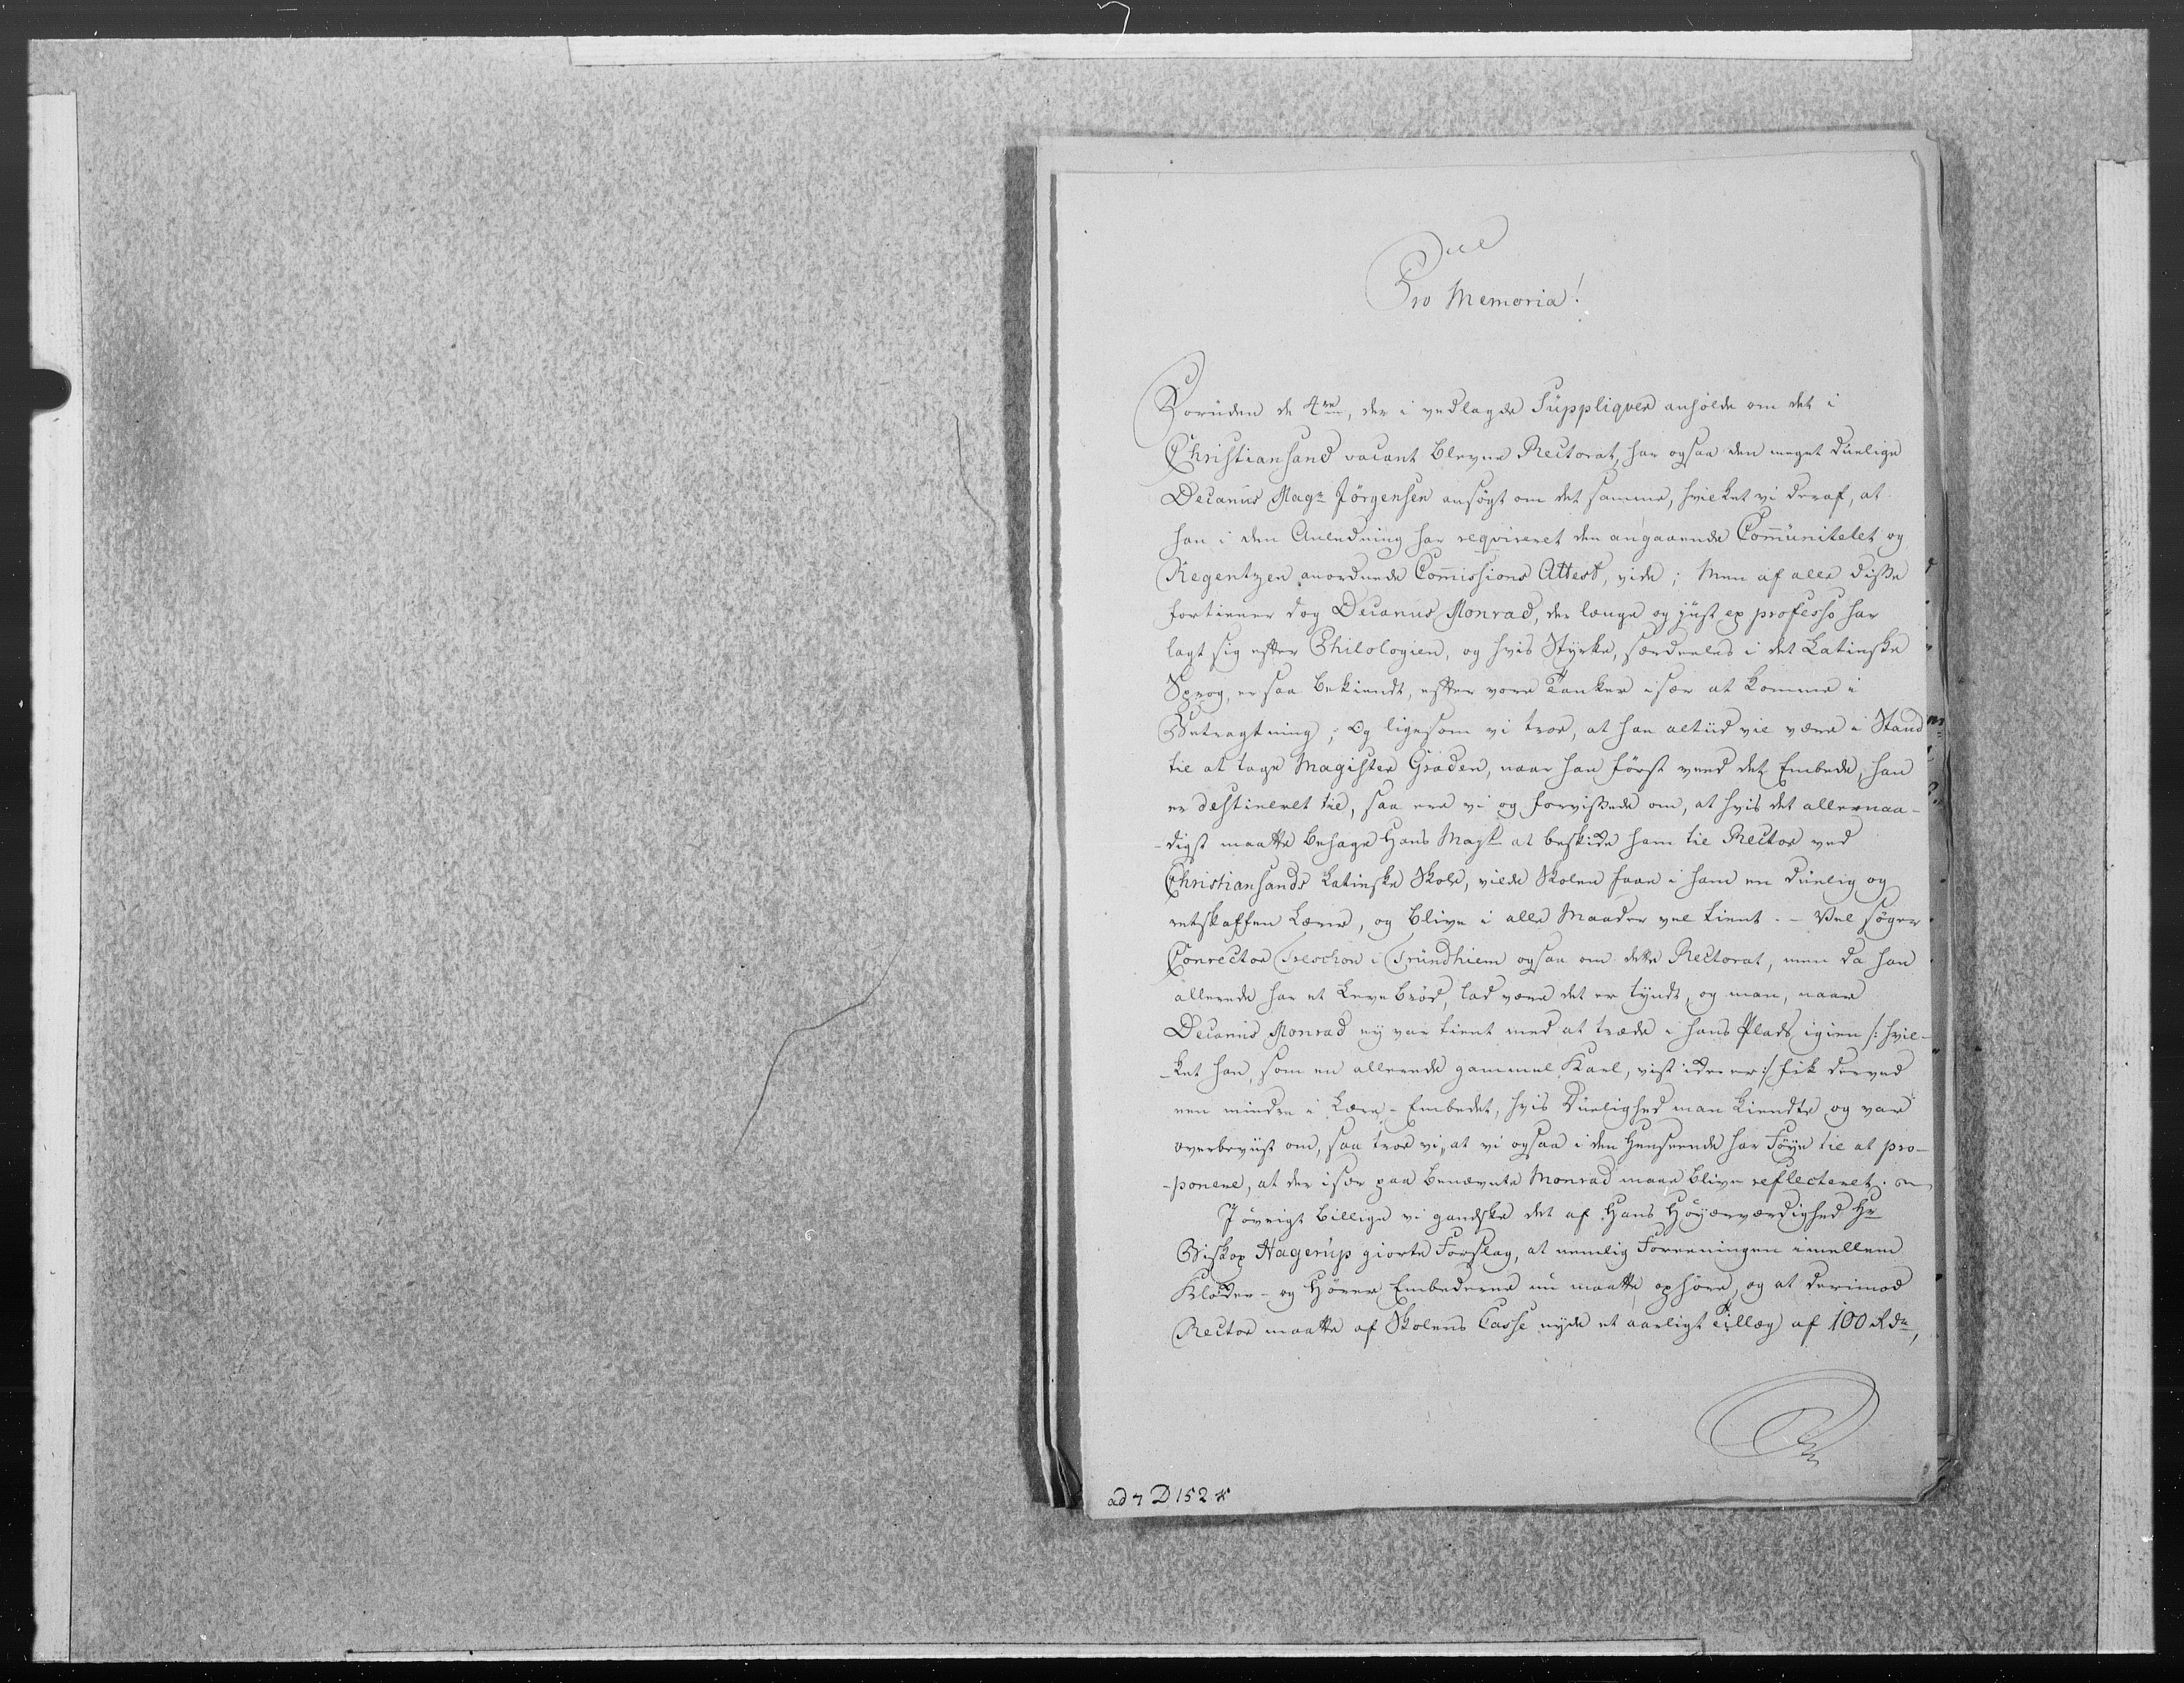 Pro Memoria!
Foruden de 4re, der i vedlagde Suppliqver anholde om det i
Christiansand vacant blevne Rectorat, har ogsaa den meget duelige
Decanus Magr Jörgensen ansögt om det samme, hvilket vi deraf, at
han i den Anledning har reqvireret den angaaende Communitetet og
Regentzen anordnede Commissions Attest, vide; Men af alle disse
fortiener dog Decanus Monrad, der længe og just ex professo har
lagt sig efter Philologien, og hvis Styrke, særdeeles i det Latinske
Sprog, er saa bekiendt, efter vore Tanker især at komme i
Betragtning; Og ligesom vi troe, at han altiid vil være i Stand
til at tage Magister Graden, naar han först veed det Embede, han
er destineret til, saa ere vi og forvissede om, at hvis det allernaa-
-digst maatte behage Hans Mayt at beskikke ham til Rector ved
Christiansands Latinske Skole, vilde Skolen faae i ham en duelig og
retskaffen Lærer, og blive i alle Maader vel tient. - Vel söger
Conrector Treschow i Trundhiem ogsaa om dette Rectorat, men da han
allerede har et Levebröd, lad være det er tyndt, og man, naar
Decanus Monrad ey var tient med at træde i hans Plads igien /: hvil-
-ket han, som en allerede gammel Karl, vist ikke er :/ fik derved
een mindre i Lære-Embedet, hvis Duelighed man kiendte og var
overbeviist om, saa troe vi, at vi ogsaa i den Henseende har Föye til at pro-
-ponere, at der især paa benævnte Monrad maae blive reflecteret.
I övrigt billige vi gandske det af Hans Höyærværdighed Hr
Biskop Hagerup giorte Forslag, at nemlig Foreeningen imellem
Klokker- og Hörer Embederne nu maatte ophöre, og at derimod
Rector maatte af Skolens Casse nyde et aarligt Tillæg af 100 Rdr,
ad 7 D 152